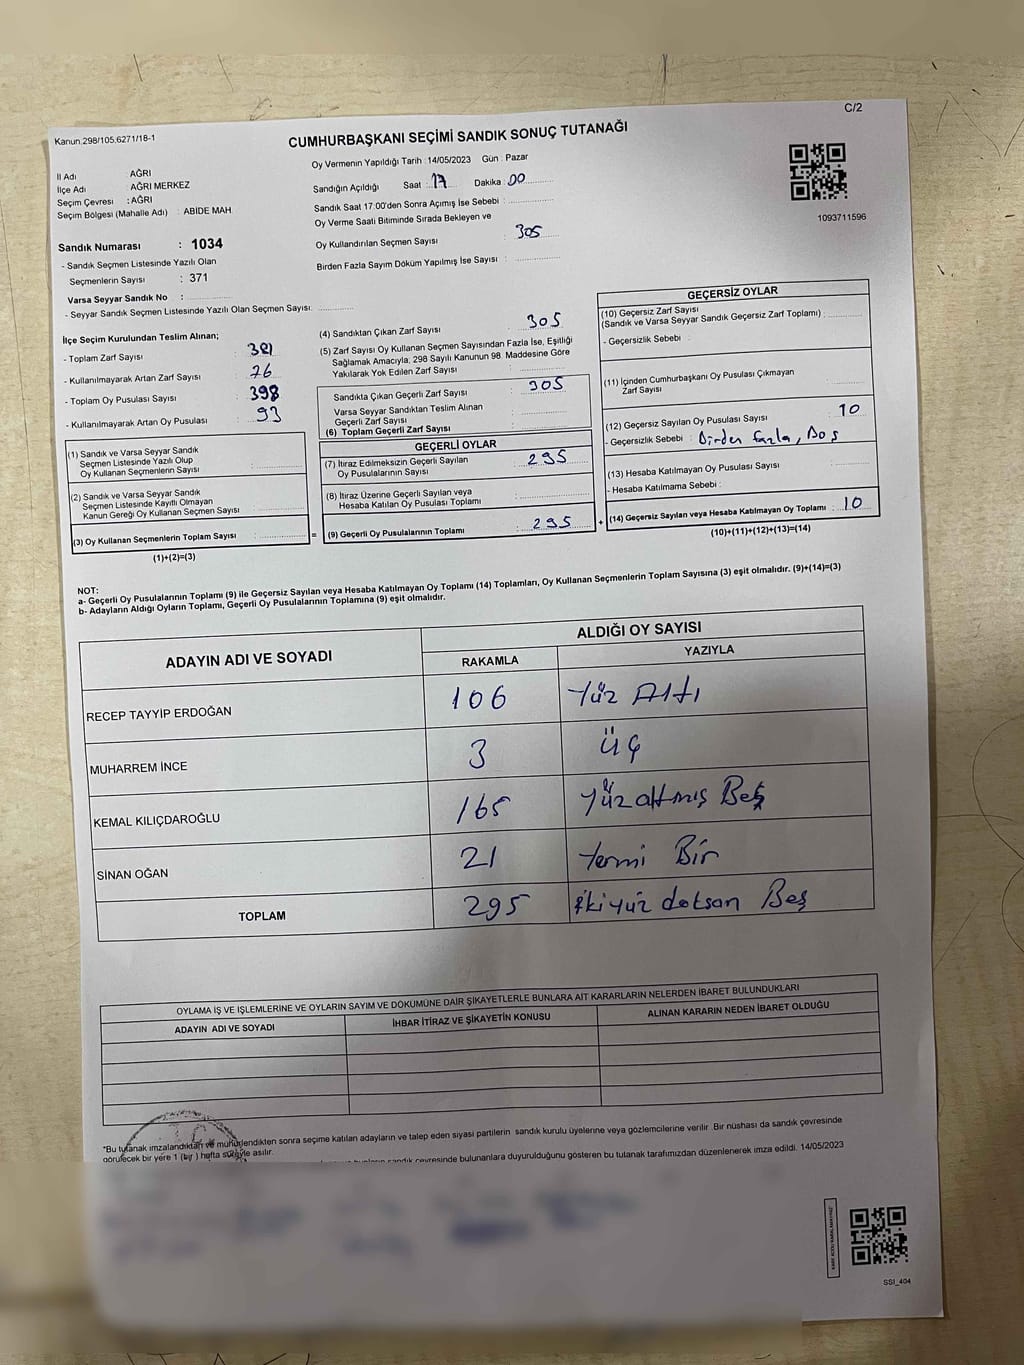 C/2
Kanun.298/105.6271/18-1
CUMHURBAŞKANI SEÇİMİ SANDIK SONUÇ TUTANAĞI
İl Adı AĞRI
İlçe Adı : AĞRI MERKEZ
Seçim Çevresi : AĞRI
Seçim Bölgesi (Mahalle Adı) : ABİDE MAH.
Sandık Numarası : 1034
- Sandık Seçmen Listesinde Yazılı Olan
Seçmenlerin Sayısı : 371
Varsa Seyyar Sandık No :
- Seyyar Sandık Seçmen Listesinde Yazılı Olan Seçmen Sayısı:
Oy Vermenin Yapıldığı Tarih : 14/05/2023 Gün : Pazar
Sandığın Açıldığı Saat : 17 Dakika : 00
Sandık Saat 17:00'den Sonra Açımış İse Sebebi :
Oy Verme Saati Bitiminde Sırada Bekleyen ve
Oy Kullandırılan Seçmen Sayısı : 305
Birden Fazla Sayım Döküm Yapılmış İse Sayısı :
1093711596
İlçe Seçim Kurulundan Teslim Alınan;
- Toplam Zarf Sayısı : 381
- Kullanılmayarak Artan Zarf Sayısı : 76
- Toplam Oy Pusulası Sayısı : 398
- Kullanılmayarak Artan Oy Pusulası : 93
(1) Sandık ve Varsa Seyyar Sandık
Seçmen Listesinde Yazılı Olup
Oy Kullanan Seçmenlerin Sayısı :
(2) Sandık ve Varsa Seyyar Sandık
Seçmen Listesinde Kayıtlı Olmayan
Kanun Gereği Oy Kullanan Seçmen Sayısı :
(3) Oy Kullanan Seçmenlerin Toplam Sayısı : =
(1)+(2)=(3)
(4) Sandıktan Çıkan Zarf Sayısı : 305
(5) Zarf Sayısı Oy Kullanan Seçmen Sayısından Fazla İse, Eşitliği
Sağlamak Amacıyla, 298 Sayılı Kanunun 98. Maddesine Göre
Yakılarak Yok Edilen Zarf Sayısı :
Sandıkta Çıkan Geçerli Zarf Sayısı : 305
Varsa Seyyar Sandıktan Teslim Alınan
Geçerli Zarf Sayısı :
(6) Toplam Geçerli Zarf Sayısı :
GEÇERLİ OYLAR
(7) İtiraz Edilmeksizin Geçerli Sayılan
Oy Pusulalarının Sayısı : 295
(8) İtiraz Üzerine Geçerli Sayılan veya
Hesaba Katılan Oy Pusulası Toplamı :
(9) Geçerli Oy Pusulalarının Toplamı : 295 +
GEÇERSİZ OYLAR
(10) Geçersiz Zarf Sayısı
(Sandık ve Varsa Seyyar Sandık Geçersiz Zarf Toplamı) :
- Geçersizlik Sebebi :
(11) İçinden Cumhurbaşkanı Oy Pusulası Çıkmayan
Zarf Sayısı :
(12) Geçersiz Sayılan Oy Pusulası Sayısı : 10
- Geçersizlik Sebebi : Birden fazla, Boş
(13) Hesaba Katılmayan Oy Pusulası Sayısı :
- Hesaba Katılmama Sebebi :
(14) Geçersiz Sayılan veya Hesaba Katılmayan Oy Toplamı : 10
(10)+(11)+(12)+(13)=(14)
NOT:
a- Geçerli Oy Pusulalarının Toplamı (9) ile Geçersiz Sayılan veya Hesaba Katılmayan Oy Toplamı (14) Toplamları, Oy Kullanan Seçmenlerin Toplam Sayısına (3) eşit olmalıdır. (9)+(14)=(3)
b- Adayların Aldığı Oyların Toplamı, Geçerli Oy Pusulalarının Toplamına (9) eşit olmalıdır.
ADAYIN ADI VE SOYADI ALDIĞI OY SAYISI
RAKAMLA YAZIYLA
RECEP TAYYİP ERDOĞAN 106 Yüz Altı
MUHARREM İNCE 3 üç
KEMAL KILIÇDAROĞLU 165 Yüz altmış Beş
SİNAN OĞAN 21 Yermi Bir
TOPLAM 295 ikiyüz doksan Beş
OYLAMA İŞ VE İŞLEMLERİNE VE OYLARIN SAYIM VE DÖKÜMÜNE DAİR ŞİKAYETLERLE BUNLARA AİT KARARLARIN NELERDEN İBARET BULUNDUKLARI
ADAYIN ADI VE SOYADI İHBAR İTİRAZ VE ŞİKAYETİN KONUSU ALINAN KARARIN NEDEN İBARET OLDUĞU
*Bu tutanak imzalandıktan ve mühürlendikten sonra seçime katılan adayların ve talep eden siyasi partilerin sandık kurulu üyelerine veya gözlemcilerine verilir. Bir nüshası da sandık çevresinde
görülecek bir yere 1 (bir) hafta süreyle asılır.
sandık çevresinde bulunanlara duyurulduğunu gösteren bu tutanak tarafımızdan düzenlenerek imza edildi. 14/05/2023
SSI_404